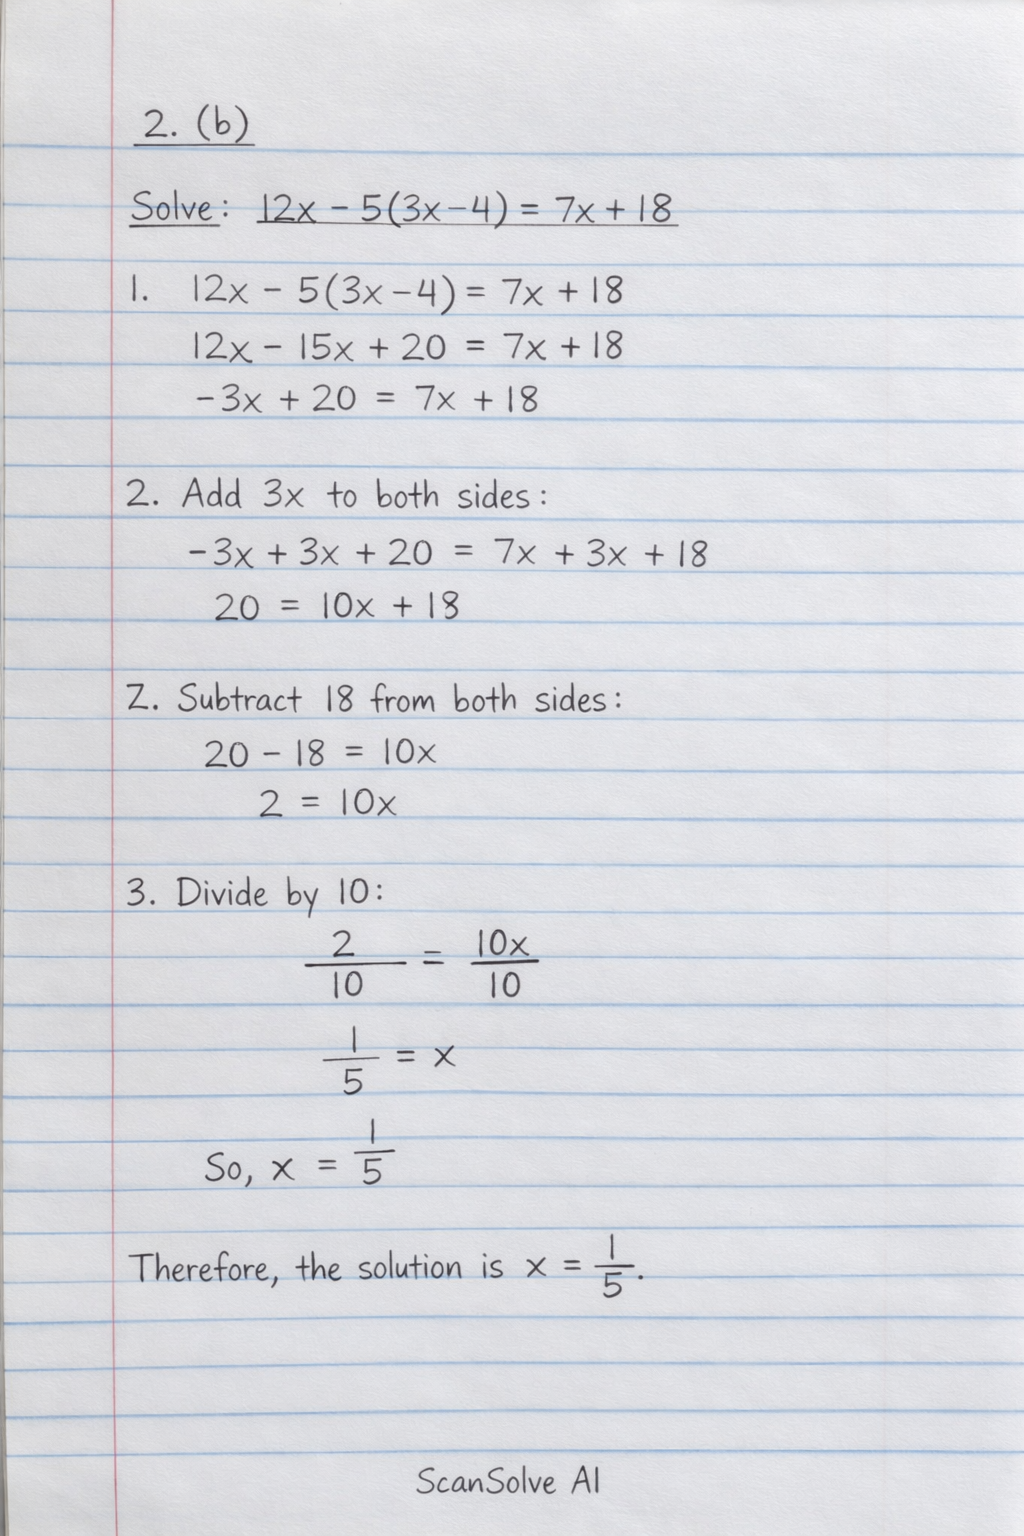 2. (b)
Solve: 12x - 5(3x-4) = 7x + 18
1. 12x - 5(3x-4) = 7x + 18
12x - 15x + 20 = 7x + 18
-3x + 20 = 7x + 18
2. Add 3x to both sides:
-3x + 3x + 20 = 7x + 3x + 18
20 = 10x + 18
Z. Subtract 18 from both sides:
20 - 18 = 10x
2 = 10x
3. Divide by 10:
2/10 = 10x/10
1/5 = x
So, x = 1/5
Therefore, the solution is x = 1/5.
ScanSolve AI